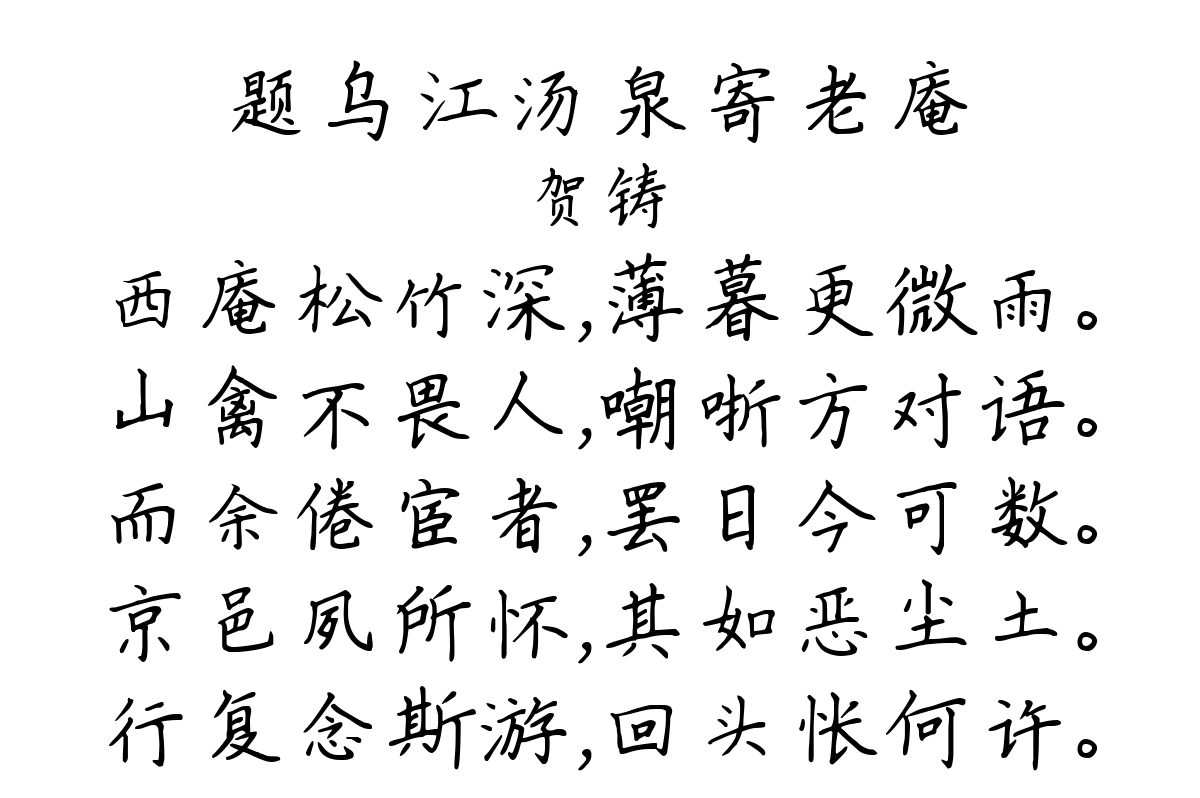 题乌江汤泉寄老庵
贺铸
西庵松竹深,薄暮更微雨。
山禽不畏人,嘲哳方对语。
而余倦宦者,罢日今可数。
京邑夙所怀,其如恶尘土。
行复念斯游,回头怅何许。